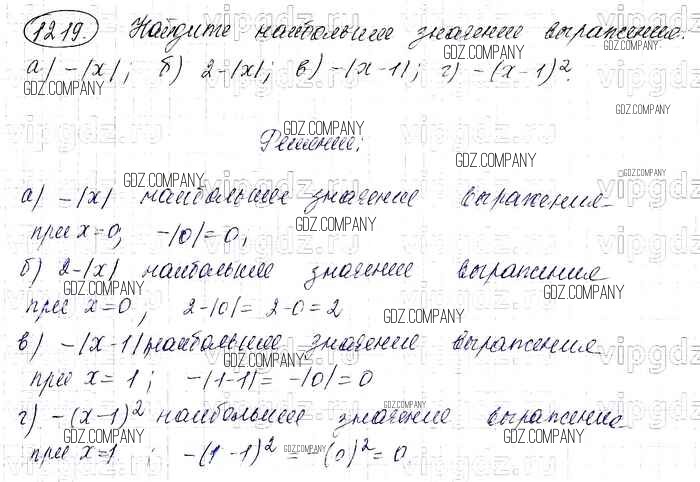 1219. Найдите наибольшее значение выражение.
а) -|x|; б) 2-|x|; в) -|x-1|; г) -(x-1)².
Решение;
а) -|x| наибольшее значение выражения
при x=0, -|0|=0,
б) 2-|x| наибольшее значение выражения
при x=0, 2-|0|= 2-0=2
в) -|x-1|, наибольшее значение выражения
при x=1; -|1-1|= -|0|=0
г) -(x-1)² наибольшее значение выражение
при x=1 ; -(1-1)² = -(0)²=0